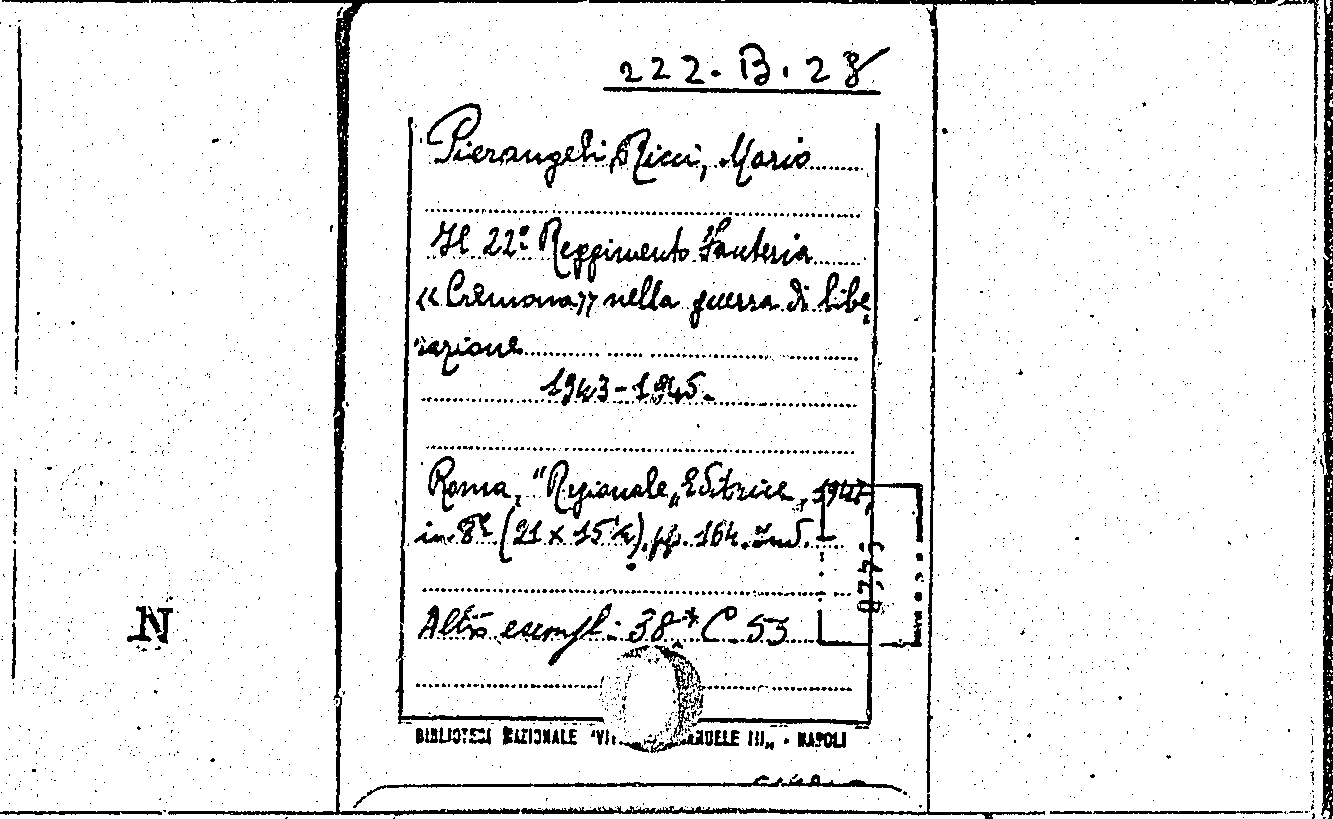 222.B.28
Pierangeli Ricci, Mario
Il 22º Reggimento Fanteria
«Cremona» nella guerra di libe
razione
1943-1945.
Roma, "Regionale„ Editrice, 1947,
in 8º (21 x 15 ½). pp. 164. Ind.
Altro esempl: 38* C 53
BIBLIOTECA NAZIONALE "VI ANUELE III„ - NAPOLI
N